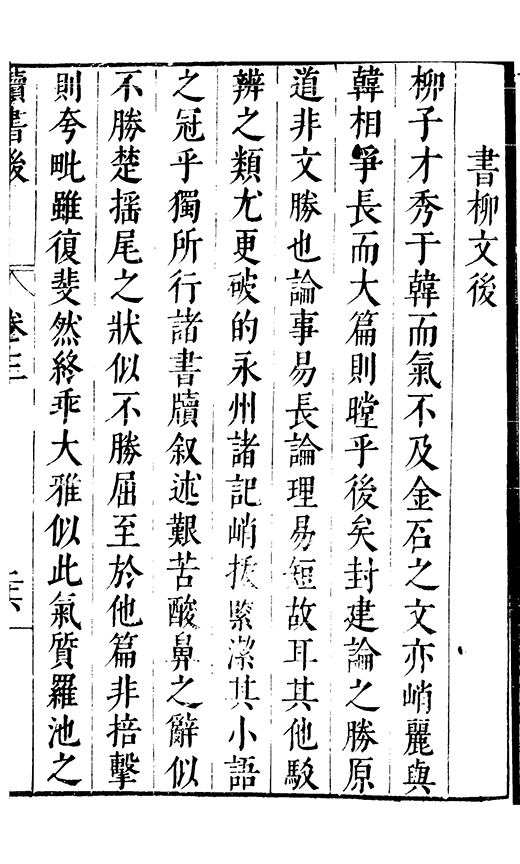 書柳文後
柳子才秀于韓而氣不及金石之文亦峭麗與
韓相爭長而大篇則瞠乎後矣封建論之勝原
道非文勝也論事易長論理易短故耳其他駁
辨之類尤更破的永州諸記峭拔緊潔其小語
之冠乎獨所行諸書牘叙述艱苦酸鼻之辭似
不勝楚揺尾之狀似不勝屈至於他篇非掊擊
則夸毗雖復斐然終乖大雅似此氣質羅池之
讀書後 卷三